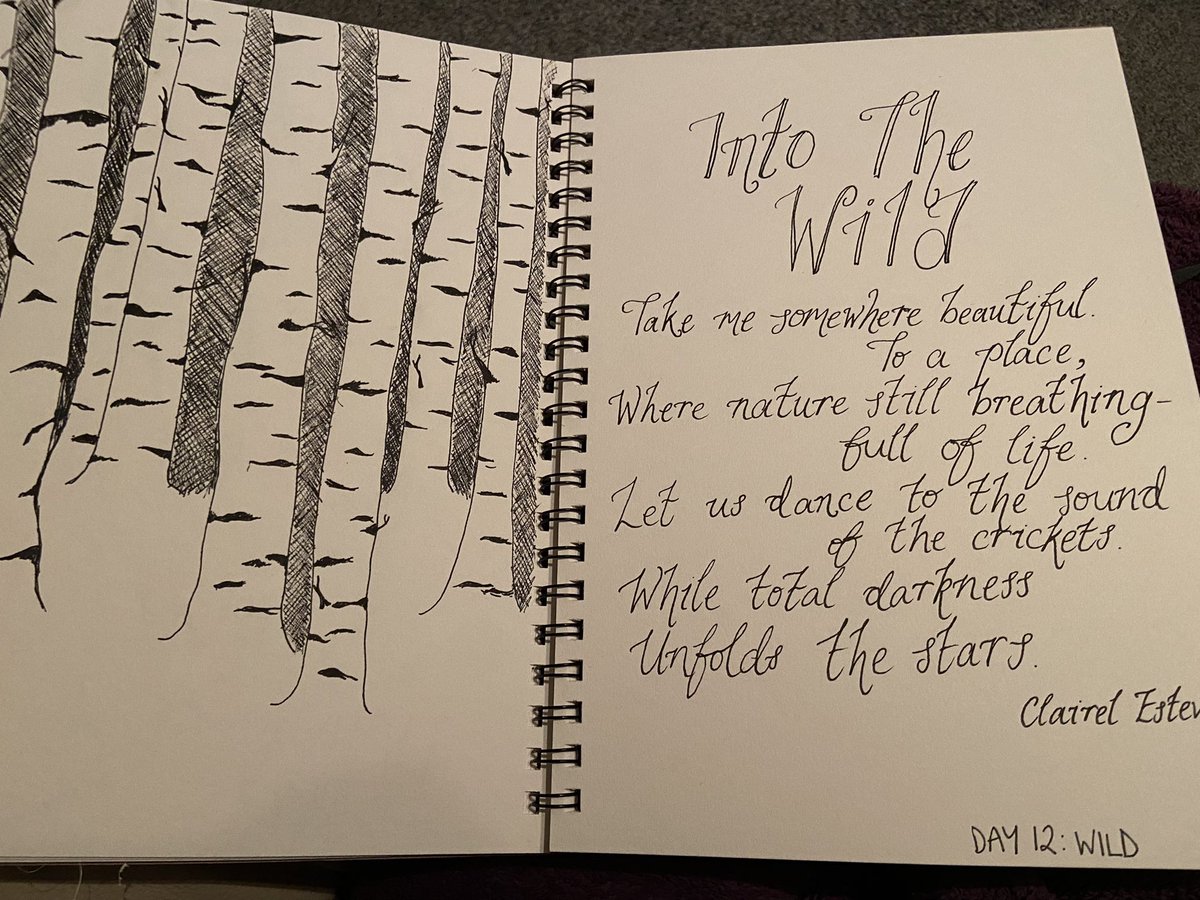 Into The
Wild
Take me somewhere beautiful.
To a place,
Where nature still breathing-
full of life.
Let us dance to the sound
of the crickets.
While total darkness
Unfolds the stars.
Clairel
DAY 12: WILD